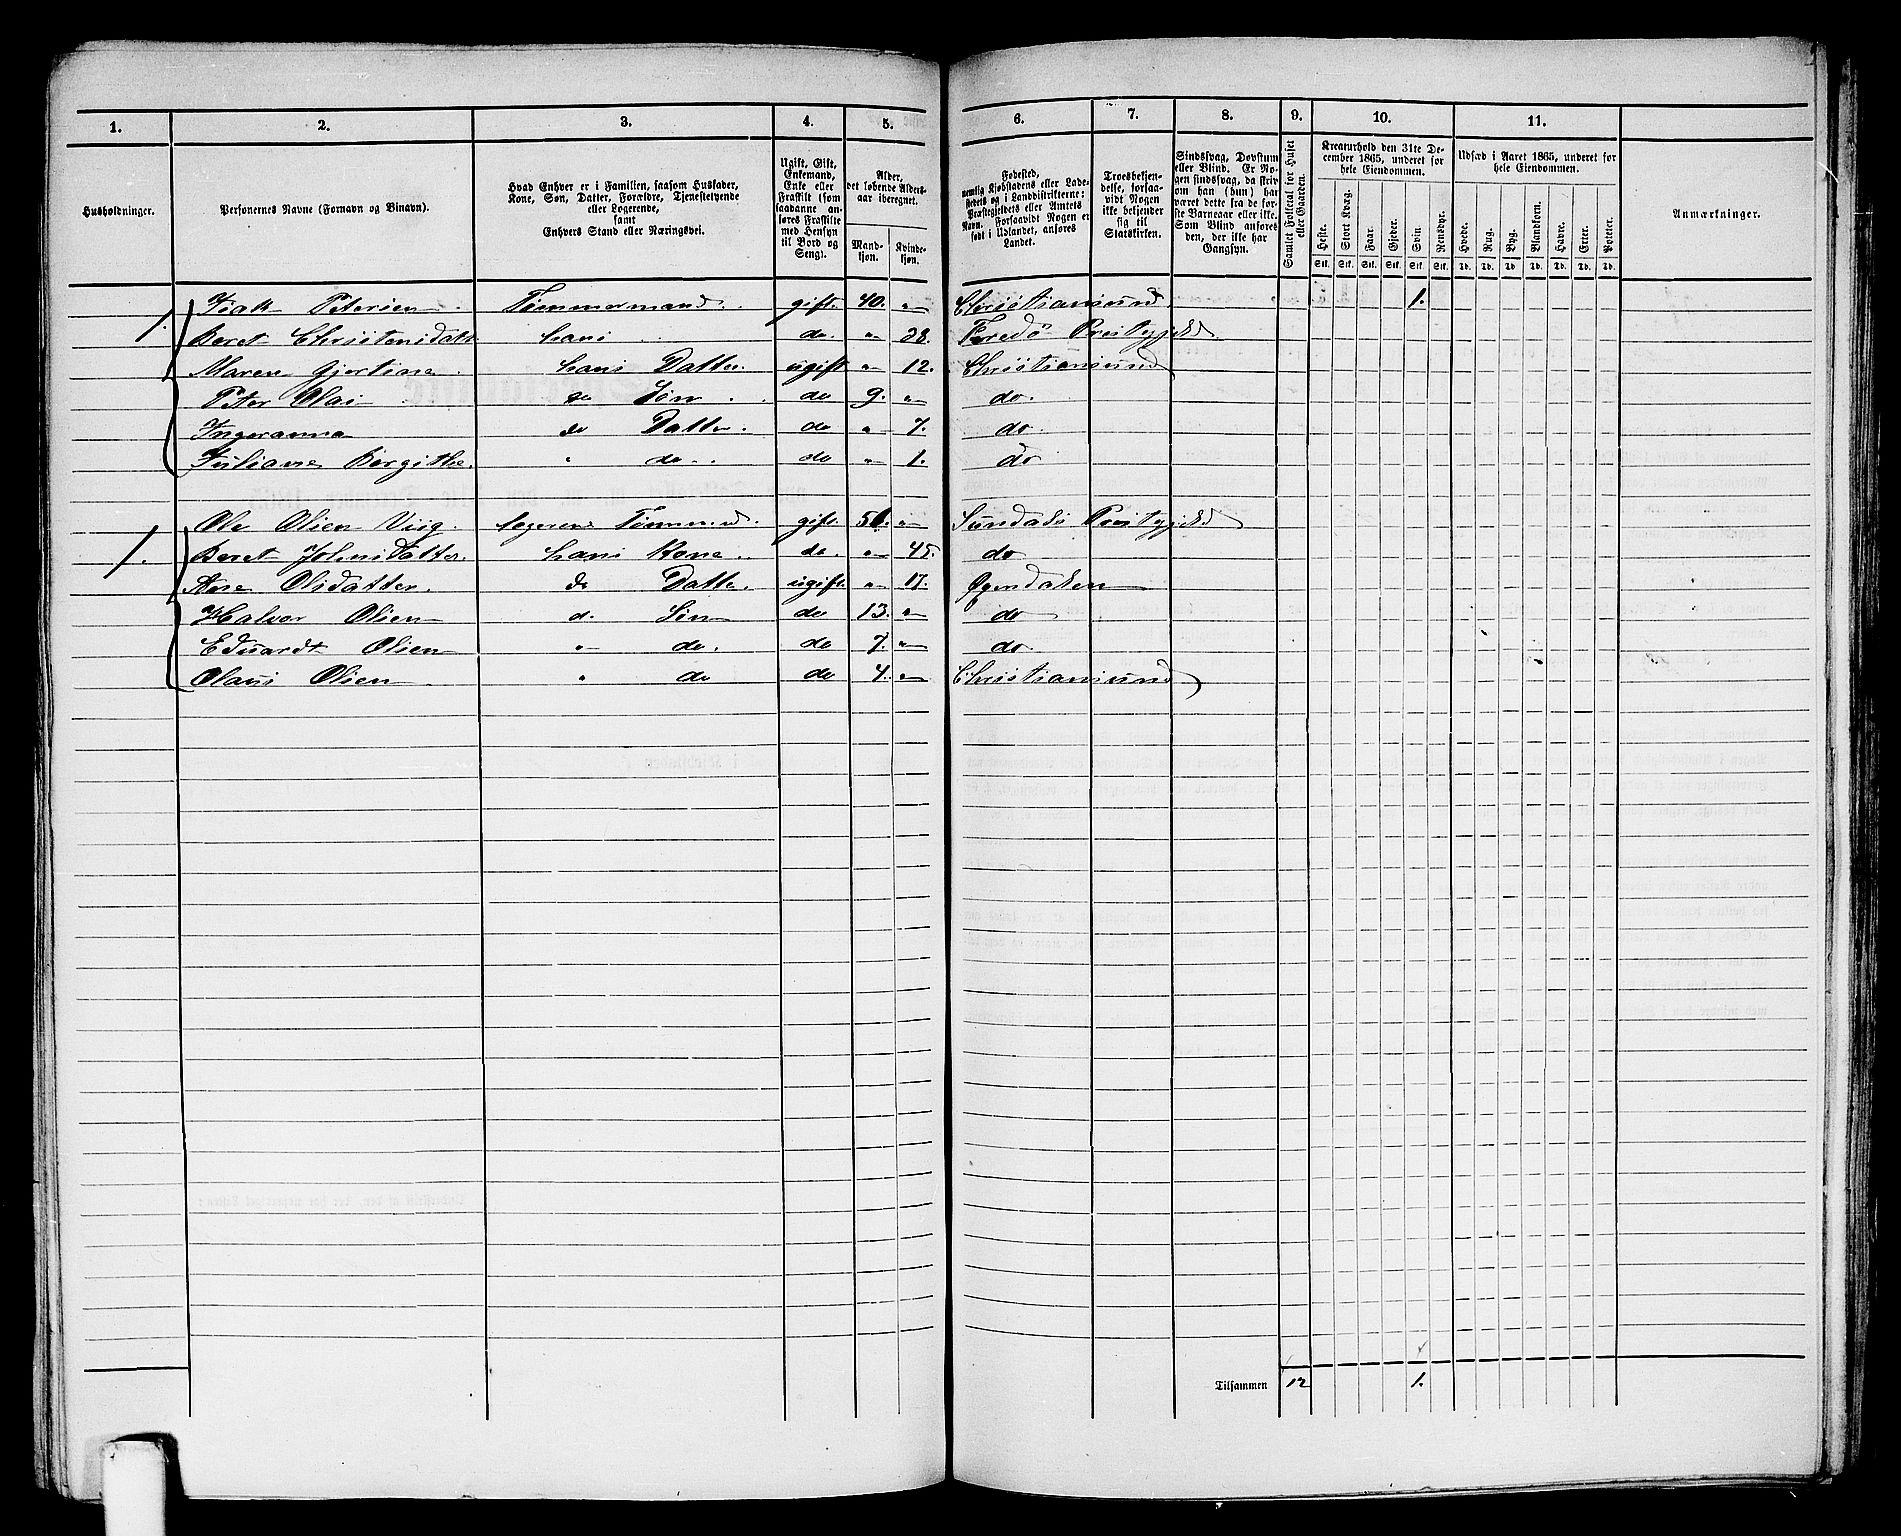 1. 2. 3. 4. 5. 6. 7. 8. 9. 10. 11.
Husholdninger.
Personernes Navne (Fornavn og Binavn).
Hvad Enhver er i Familien, saasom Husfader,
Kone, Søn, Datter, Forældre, Tjenestetyende
eller Logerende,
samt
Enhvers Stand eller Næringsvei.
Ugift, Gift,
Enkemand,
Enke eller
Fraskilt (som
saadanne an-
føres Fraskilte
med Hensyn
til Bord og
Seng).
Alder,
det løbende Alders-
aar iberegnet.
Mand-
kjøn.
Kvinde-
kjøn.
Fødested,
nemlig Kjøbstadens eller Lade-
stedets og i Landdistrikterne:
Præstegjeldets eller Amtets
Navn. Forsaavidt Nogen er
født i Udlandet, anføres
Landet.
Troesbekjen-
delse, forsaa-
vidt Nogen
ikke bekjender
sig til
Statskirken.
Sindssvag, Døvstum
eller Blind. Er No-
gen sindssvag, da skriv
om han (hun) har
været dette fra de før-
ste Barneaar eller ikke.
Som Blind anføres
den, der ikke har
Gangsyn.
Samlet Folketal for Huset
eller Gaarden.
Kreaturhold den 31te De-
cember 1865, underet for
hele Eiendommen.
Heste. Stort Kvæg. Faar. Gjeder. Svin. Rensdyr.
Stk. Stk. Stk. Stk. Stk. Stk.
Udsæd i Aaret 1865, underet for
hele Eiendommen.
Hvede. Rug. Byg. Blandkorn. Havre. Erter. Poteter.
Td. Td. Td. Td. Td. Td. Td.
Anmærkninger.
Petersen Tømmermand gift. 40. " Christiansund 1.
1. Beret Christensdatt hans do. " 38. Præstegjeld
Maren Gjertine hans Datter ugift " 12. Christiansund
Peter Olai do Søn do 9. " do.
Ingeranna do Datter do " 7. do.
Juliane Bergithe. " do. do " 1. do
Ole Olsen logerende Tømmerm. gift. 51. " Sundals Præstegjeld
1. Beret Johnsdatter hans Kone do. " 45. do
Ane Olsdatter. do Datter ugift. " 17.
Halvor Olsen do Søn do 13. " do
Eduardt Olsen " do. do 7. " do.
Olaus Olsen " do do 4. " Christiansund
Tilsammen 12 1.